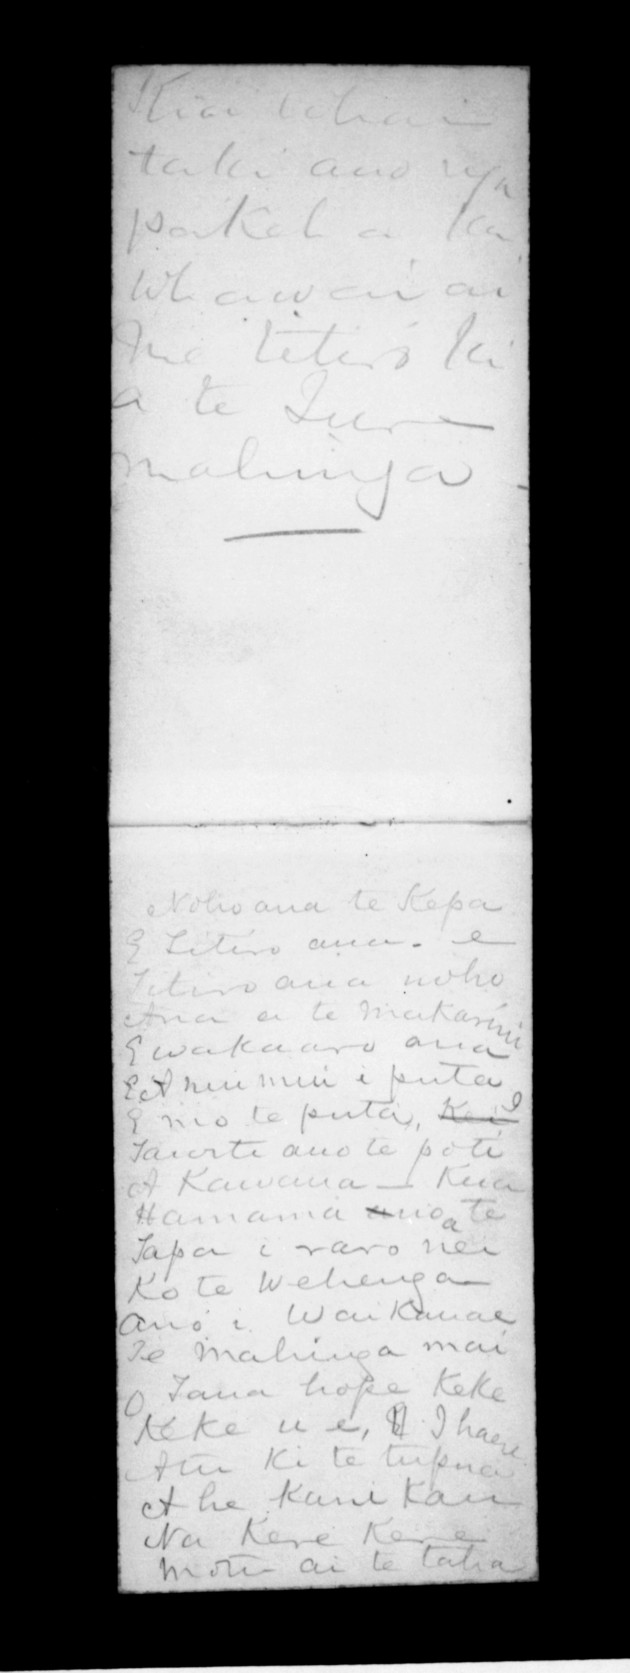 Kia
taki ano nga
pakeha ka
Whawai ai
Me titiro ki
a te
mahinga -
Noho ana te Kepa
E Titiro ana. e
Titiro ana noho
Ana a te Makarini
E wakaaro ana
E A mui mui i puta
E mo te puta, Kei I
Taiorti ano te poti
A Kawana — Kua
Hamama ano a te
Tapa i raro nei
Ko te Wehenga
Ano i Waikanae
Te Mahinga mai
O Tana hope Keke
Keke u e, I haere
Atu Ki te tupua
A he Kani Kani
Na Kere Kere
Motu ai te taha